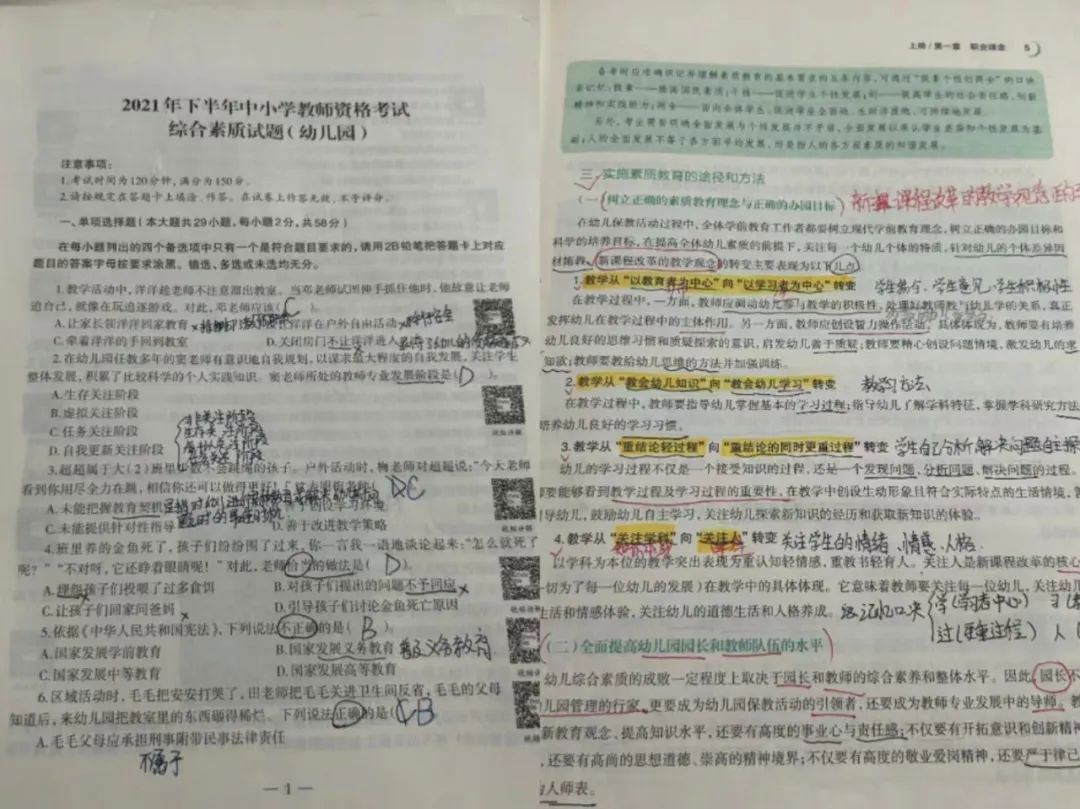 2021年下半年中小学教师资格考试
综合素质试题(幼儿园)
注意事项:
1.考试时间为120分钟,满分为150分。
2.请按规定在答题卡上填涂、作答。在试卷上作答无效,不予评分。
一、单项选择题(本大题共29小题,每小题2分,共58分)
在每小题列出的四个备选项中只有一个是符合题目要求的,请用2B铅笔把答题卡上对应
题目的答案字母按要求涂黑。错选、多选或未选均无分。
1.教学活动中,洋洋趁老师不注意溜出教室。当邓老师试图伸手抓住他时,他故意让老师
追自己,就像在玩追逐的游戏。对此,邓老师应该( C )。
A.让家长领洋洋回家教育
洋洋在户外自由活动
C.牵着洋洋的手回到教室
D.关闭房门不让洋洋进入
2.在幼儿园任教多年的窦老师有意识地自我规划,以谋求最大程度的自我发展,关注学生
整体发展,积累了比较科学的个人实践知识。窦老师所处的教师专业发展阶段是( D )。
A.生存关注阶段
B.虚拟关注阶段
C.任务关注阶段
D.自我更新关注阶段
3.超超属于大(2)班里
的孩子。户外活动时,梅老师对超超说:“今天老师
看到你用尽全力在跳,相信你还可以做得更好!”
DC
A.未能把握教育契机
C.未能提供针对性指导
D.善于改进教学策略
4.班里养的金鱼死了,孩子们纷纷围了过来,你一言我一语地谈论起来:“怎么就死了
呢?”“不对呀,它还睁着眼睛呢!”对此,老师恰当的做法是( D )。
A.埋怨孩子们投喂了过多食饵
B.对孩子们提出的问题不予回应
C.让孩子们回家问爸妈
D.引导孩子们讨论金鱼死亡原因
5.依据《中华人民共和国宪法》,下列说法不正确的是( B )。
A.国家发展学前教育
B.国家发展义务教育
普及义务教育
C.国家发展中等教育
D.国家发展高等教育
6.区域活动时,毛毛把安安打哭了,田老师把毛毛关进卫生间反省,毛毛的父母
知道后,来幼儿园把教室里的东西砸得稀烂。下列说法正确的是( CB
A.毛毛父母应承担刑事附带民事法律责任
不属于
— 1 —
上册/第一章 职业理念 5
三、实施素质教育的途径和方法
(一)树立正确的素质教育理念与正确的办园目标
新课程改革的教学观
在幼儿保教活动过程中,全体学前教育工作者都要树立现代学前教育理念,树立正确的办园目标和
科学的培养目标,在提高全体幼儿素质的前提下,关注每一个幼儿个体的特质,针对幼儿的个体差异因
材施教。新课程改革的教学观念的转变主要表现为以下几点
1.教学从“以教育者为中心”向“以学习者为中心”转变
学生为主,学生意见,学生积极性
在教学过程中,一方面,教师应调动幼儿参与教学的积极性,处理好教师教与幼儿学的关系,真正
发挥幼儿在教学过程中的主体作用。另一方面,教师应创设智力操作活动。具体体现为,教师要有培养
幼儿良好的思维习惯和质疑探索的意识,启发幼儿善于质疑;教师要精心创设问题情境,激发幼儿的求
知欲;教师要教给幼儿思维的方法并加强训练。
2.教学从“教会幼儿知识”向“教会幼儿学习”转变
教学习方法
在教学过程中,教师要指导幼儿掌握基本的学习过程;指导幼儿了解学科特征,掌握学科研究方法
培养幼儿良好的学习习惯。
3.教学从“重结论轻过程”向“重结论的同时更重过程”转变
学生自己分析解决问题自主探
幼儿的学习过程不仅是一个接受知识的过程,还是一个发现问题、分析问题、解决问题的过程。
要能够看到教学过程及学习过程的重要性,在教学中创设生动形象且符合实际特点的生活情境,
导幼儿,鼓励幼儿自主学习,关注幼儿探索新知识的经历和获取新知识的体验。
4.教学从“关注学科”向“关注人”转变
关注学生的情绪、情感、人格.
以学科为本位的教学突出表现为重认知轻情感,重教书轻育人。关注人是新课程改革的核心
切为了每一位幼儿的发展)在教学中的具体体现。它意味着教师要关注每一位幼儿,关注幼儿
生活和情感体验,关注幼儿的道德生活和人格养成。
记忆口决
学(学习者中心)
过(更重过程) 人
(二)全面提高幼儿园园长和教师队伍的水平
幼儿综合素质的成败一定程度上取决于园长和教师的综合素养和整体水平。因此,园长不
儿园管理的行家,更要成为幼儿园保教活动的引领者,还要成为教师专业发展中的导师。教
新教育观念、提高知识水平,还要有高度的事业心与责任感;不仅要有开拓意识和创新精神
,还要有高尚的思想道德、崇高的精神境界;不仅要有高度的敬业爱岗精神,还要严于律己
为人师表。